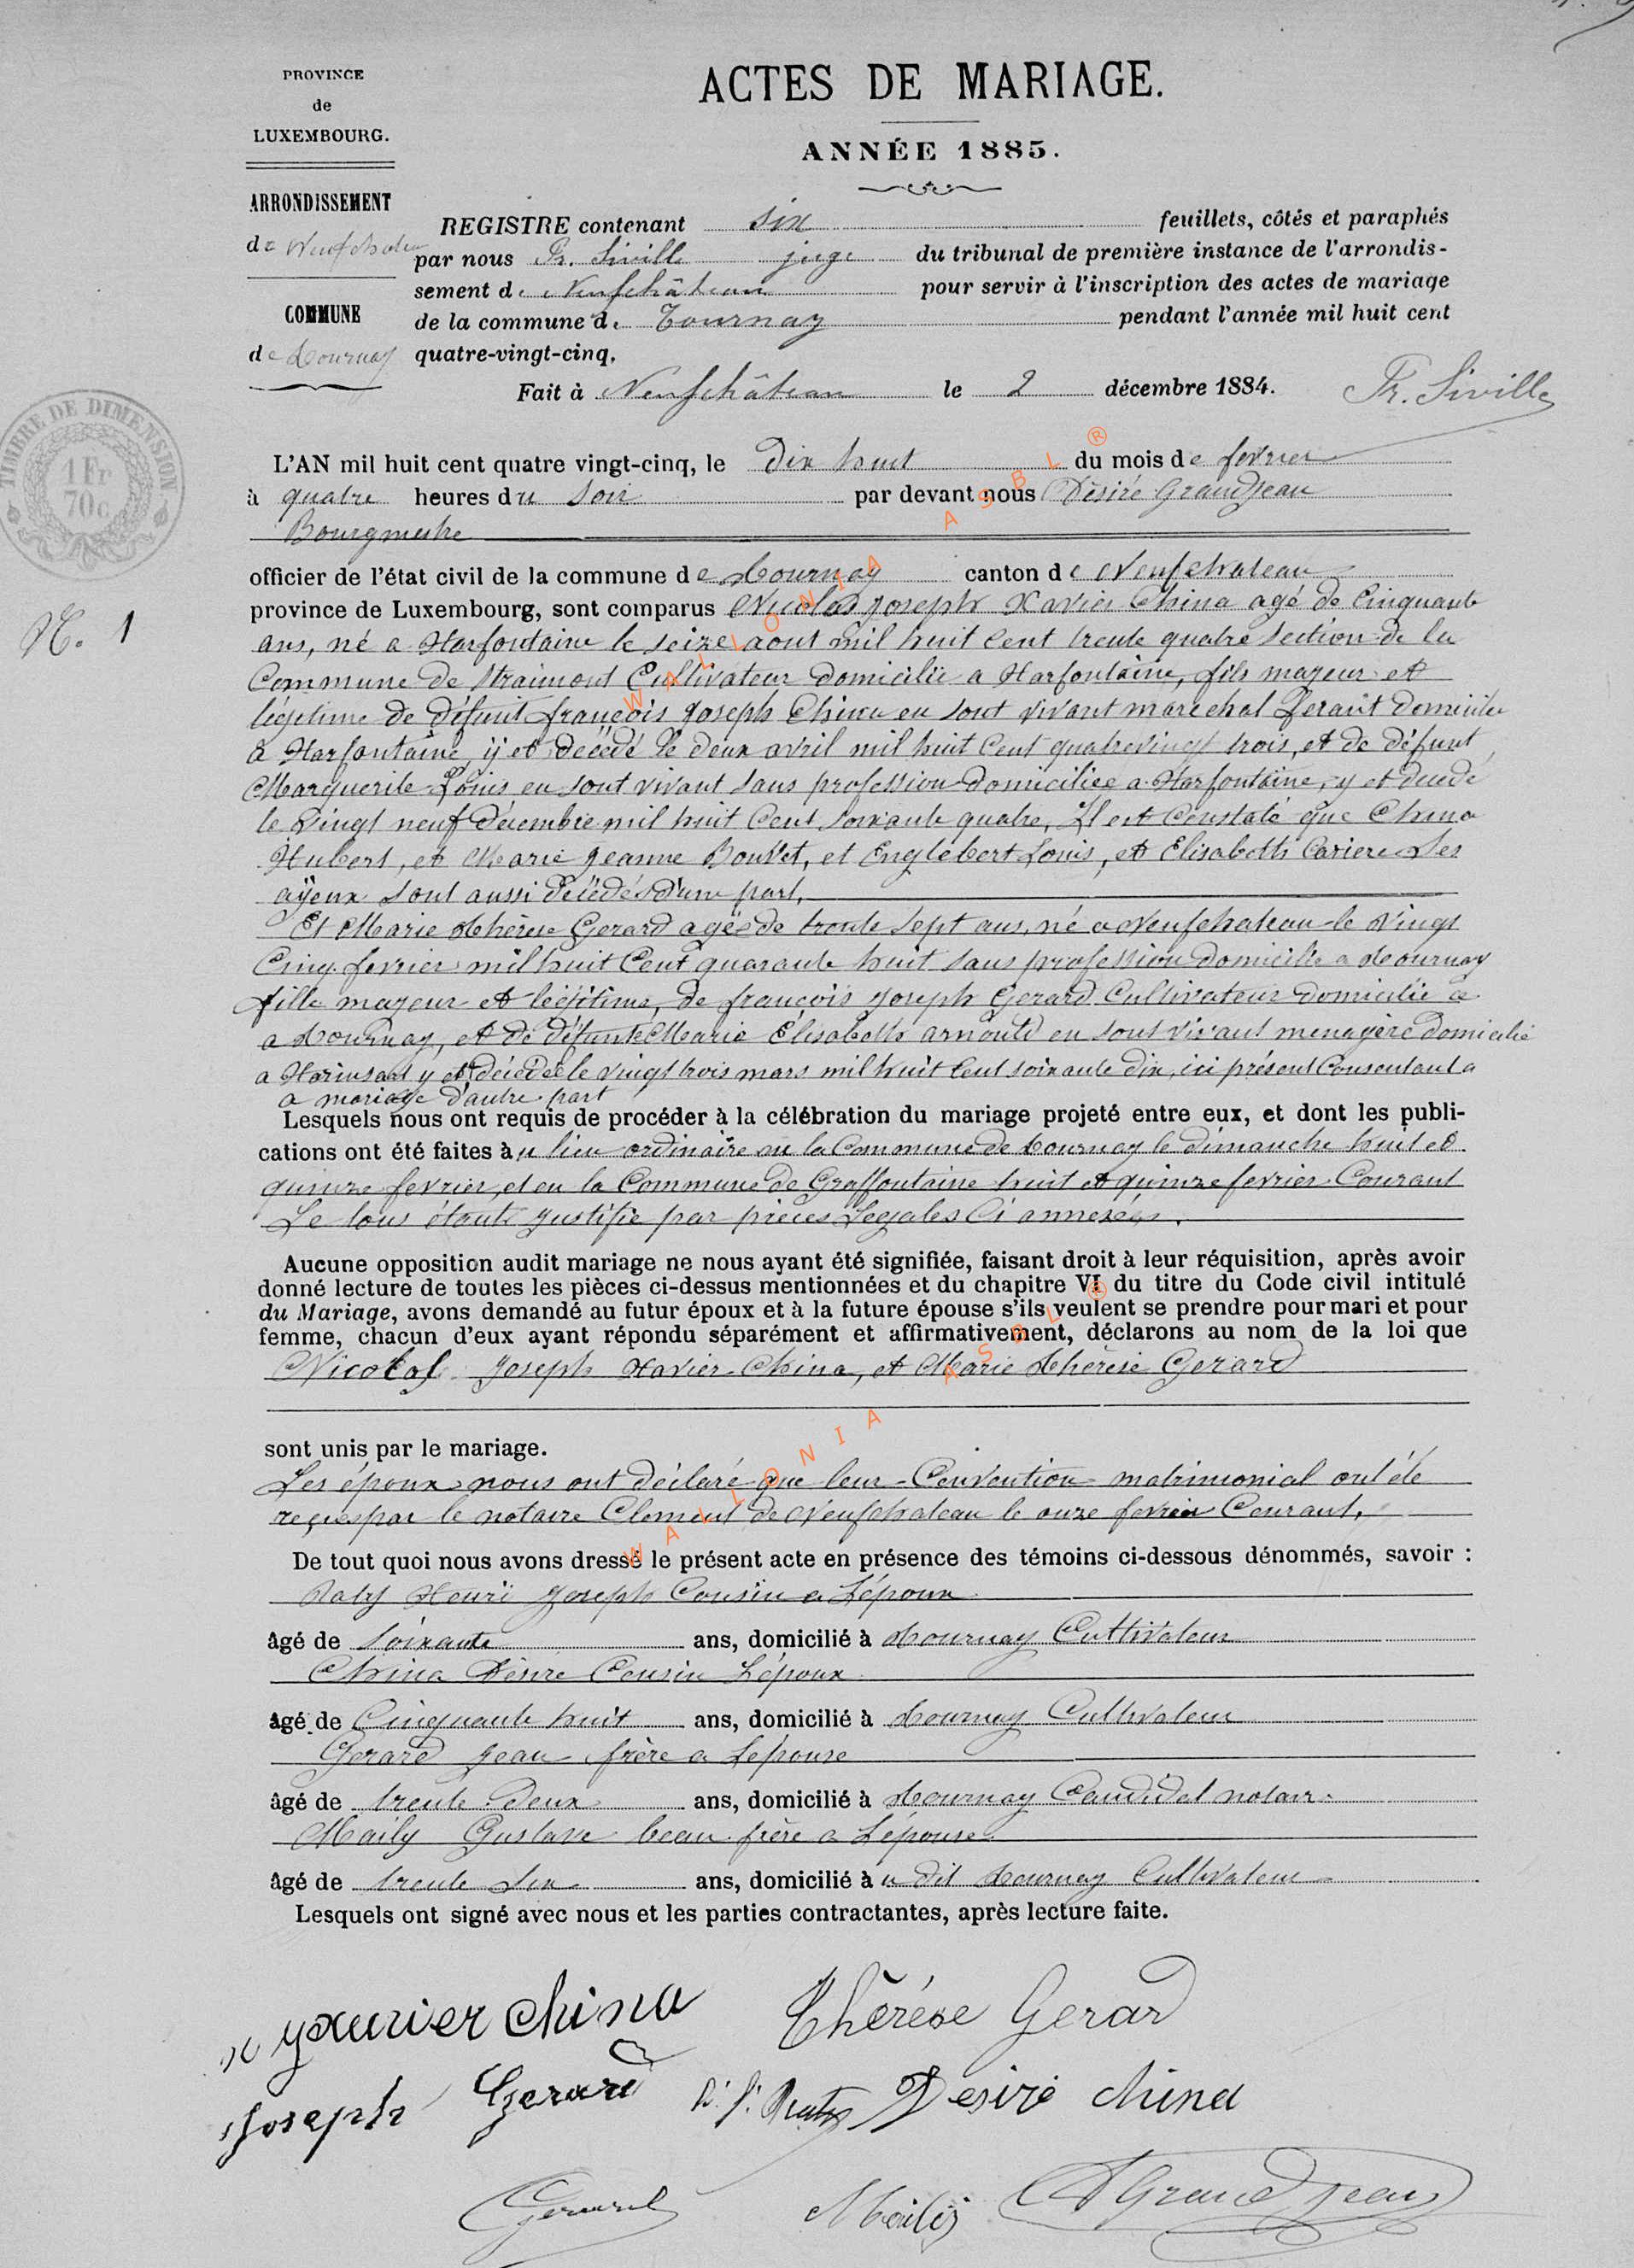 PROVINCE
de
LUXEMBOURG.
ARRONDISSEMENT
de Neufchateau
COMMUNE
de Tournay
ACTES DE MARIAGE.
ANNÉE 1885.
REGISTRE contenant six feuillets, côtés et paraphés
par nous Fr. Siville juge du tribunal de première instance de l'arrondis-
sement de Neufchâteau pour servir à l'inscription des actes de mariage
de la commune de Tournay pendant l'année mil huit cent
quatre-vingt-cinq,
Fait à Neufchâteau le 2 décembre 1884. Fr. Siville
TIMBRE DE DIMENSION
1 Fr
70c
N. 1
L'AN mil huit cent quatre vingt-cinq, le Dix huit du mois de fevrier
à quatre heures du Soir par devant nous Désiré Grandjean
Bourgmestre
officier de l'état civil de la commune de Tournay canton de Neufchateau
province de Luxembourg, sont comparus Nicolas Joseph Xavier China agé de Cinquante
ans, né a Harfontaine le seize aout mil huit cent trente quatre section de la
Commune de Straimont Cultivateur domicilié a Harfontaine, fils majeur et
légitime de défunt françois Joseph China en sont vivant marechal ferant Domicilie
a Harfontaine, ÿ et décédé le deux avril mil huit cent quatrevingt trois, et de défunt
Marguerite Louis en sont vivant sans profession domiciliee a Harfontaine, y et decedé
le vingt neuf décembre mil huit Cent soixante quatre, Il est Constaté que China
Hubert, et Marie Jeanne Bouvet, et Englebert Louis, et Elisabeth Cariere Ses
aÿeux sont aussi décédés d'une part,
Et Marie Thérèse Gerard agée de trente sept ans, né a Neufchateau le vingt
Cinq fevrier mil huit Cent quarante huit sans profession domicilie a Tournay
fille majeur et légitime, de françois Joseph Gerard Cultivateur domicilié a
a Tournay, et de défunte Marie Elisabeth arnould en sont vivant menagère domicilié
a y et décédée le vingt trois mars mil huit Cent soixante dix, ici présent Consentant a
a mariage d'autre part
Lesquels nous ont requis de procéder à la célébration du mariage projeté entre eux, et dont les publi-
cations ont été faites au lieu ordinaire en la Commune de Tournay le dimanche huit et
quinze fevrier, et en la Commune de Graffontaine huit et quinze fevrier Courant
Le tous étant justifié par pièces Legales Ci annexées.
Aucune opposition audit mariage ne nous ayant été signifiée, faisant droit à leur réquisition, après avoir
donné lecture de toutes les pièces ci-dessus mentionnées et du chapitre VI du titre du Code civil intitulé
du Mariage, avons demandé au futur époux et à la future épouse s'ils veulent se prendre pour mari et pour
femme, chacun d'eux ayant répondu séparément et affirmativement, déclarons au nom de la loi que
Nicolas Joseph Xavier China, et Marie Thérèse Gerard
sont unis par le mariage.
Les époux nous ont déclaré que leur Convention matrimonial ont été
reçues par le notaire Clement de Neufchateau le onze fevrier Courant,
De tout quoi nous avons dressé le présent acte en présence des témoins ci-dessous dénommés, savoir :
Henri Joseph Cousin a Lépoux
âgé de Soixante ans, domicilié à Tournay Cultivateur
China Désiré Cousin Lépoux
âgé de Cinquante huit ans, domicilié à Tournay Cultivateur
Gerard Jean frère a Lépouse
âgé de trente Deux ans, domicilié à Tournay Candidat notair
Maily Gustave beau frère a Lépouse
âgé de trente Six ans, domicilié à u dit Tournay Cultivateur
Lesquels ont signé avec nous et les parties contractantes, après lecture faite.
xavier china Thérèse Gerard
Joseph Gerard Desiré china
Gerard Mailij Grandjean
WALLONIA ASBL ®
WALLONIA ASBL ®